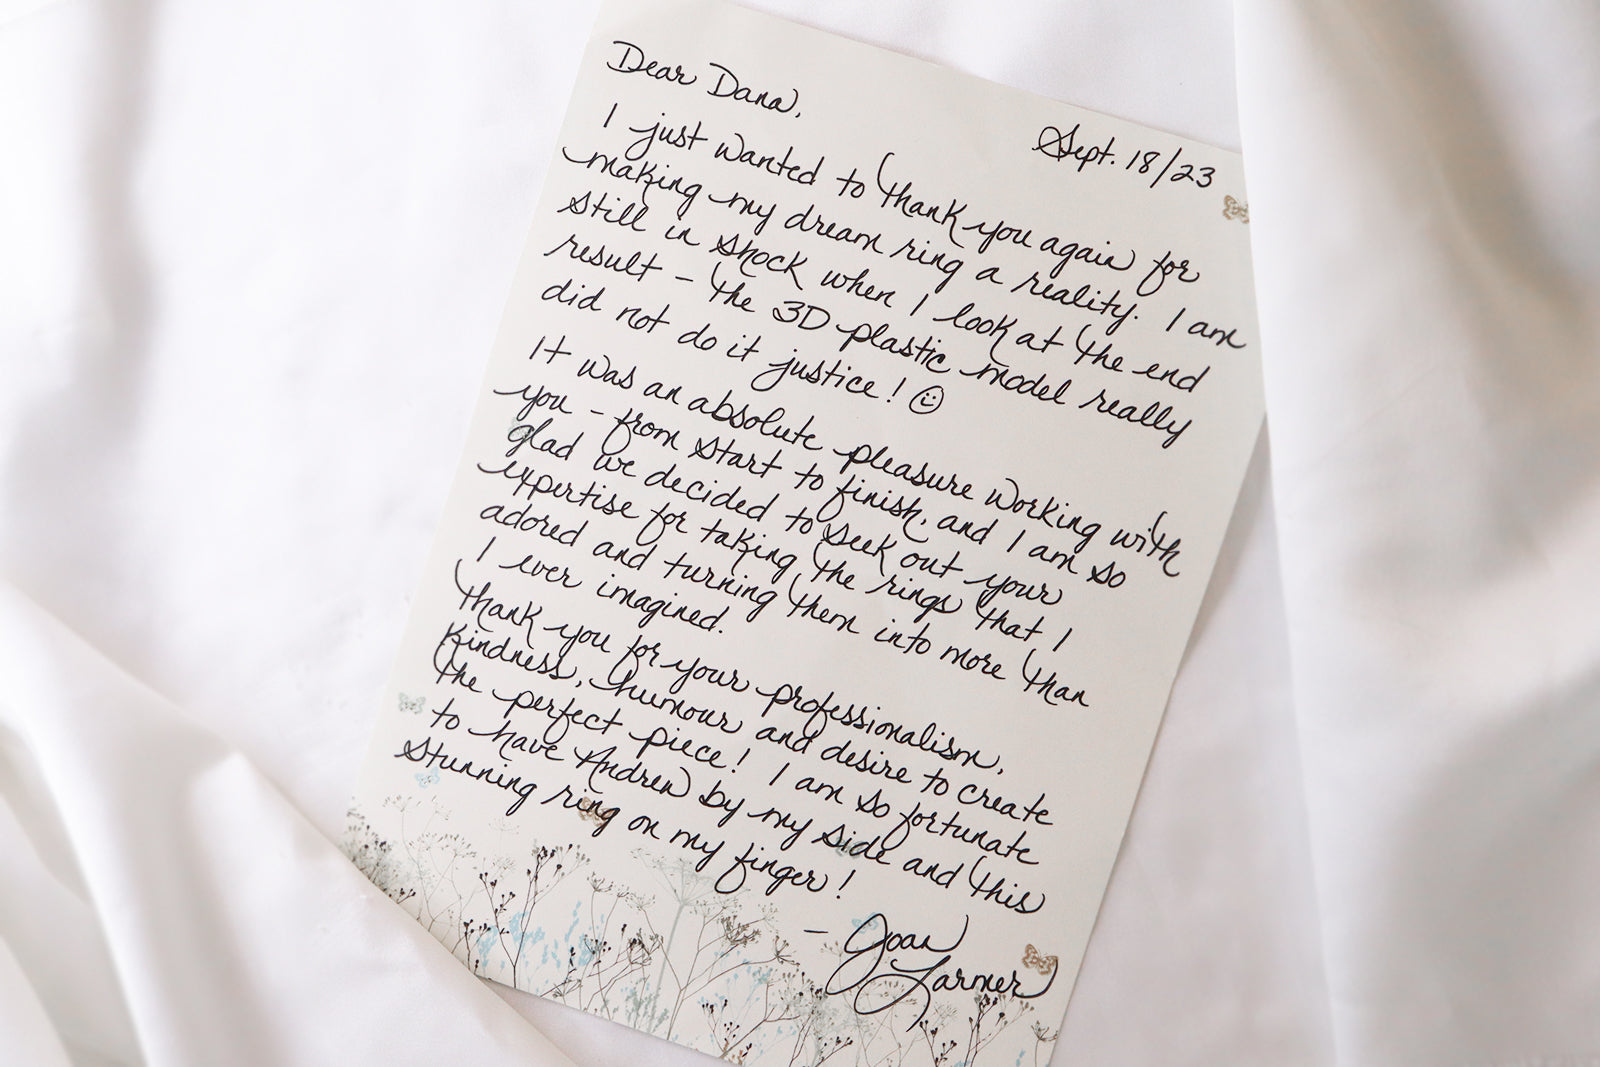 Dear Dana,
Sept. 18/23
I just wanted to thank you again for
making my dream ring a reality. I am
still in shock when I look at the end
result - the 3D plastic model really
did not do it justice! ☺
It was an absolute pleasure working with
you - from start to finish, and I am so
glad we decided to seek out your
expertise for taking the rings that I
adored and turning them into more than
I ever imagined.
Thank you for your professionalism,
kindness, humour and desire to create
the perfect piece! I am so fortunate
to have Andrew by my side and this
stunning ring on my finger!
- Joan
Larmer